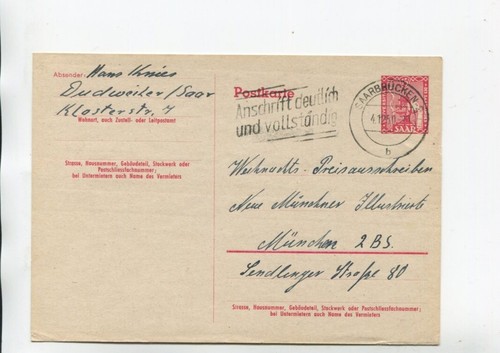 Absender: Hans Knies
Dudweiler/Saar
Klosterstr. 7
Wohnort, auch Zustell- oder Leitpostamt
Strasse, Hausnummer, Gebäudeteil, Stockwerk oder
Postschliessfachnummer;
bei Untermietern auch Name des Vermieters
Postkarte
Anschrift deutlich
und vollständig
SAARBRÜCKEN 2
b
SAAR
Weihnachts-Preisausschreiben
Neue Münchner Illustrierte
München 2 BS.
Sendlinger Straße 80
Strasse, Hausnummer, Gebäudeteil, Stockwerk oder Postschliessfachnummer;
bei Untermietern auch Name des Vermieters